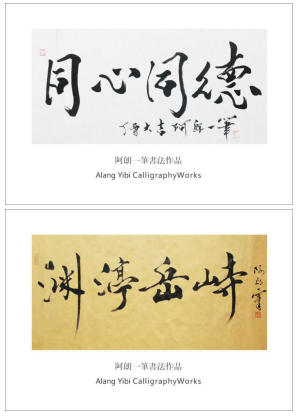 同心同德
阿朗一筆書法作品
Alang Yibi CalligraphyWorks
渊渟岳峙
阿朗一筆書法作品
Alang Yibi CalligraphyWorks